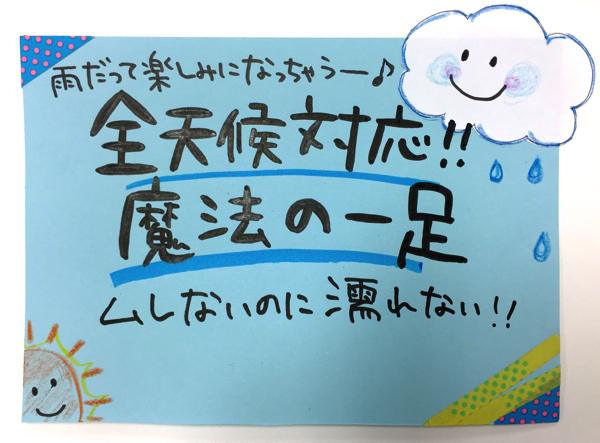 雨だって楽しみになっちゃうー♪
全天候対応!!
魔法の一足
ムしないのに濡れない!!